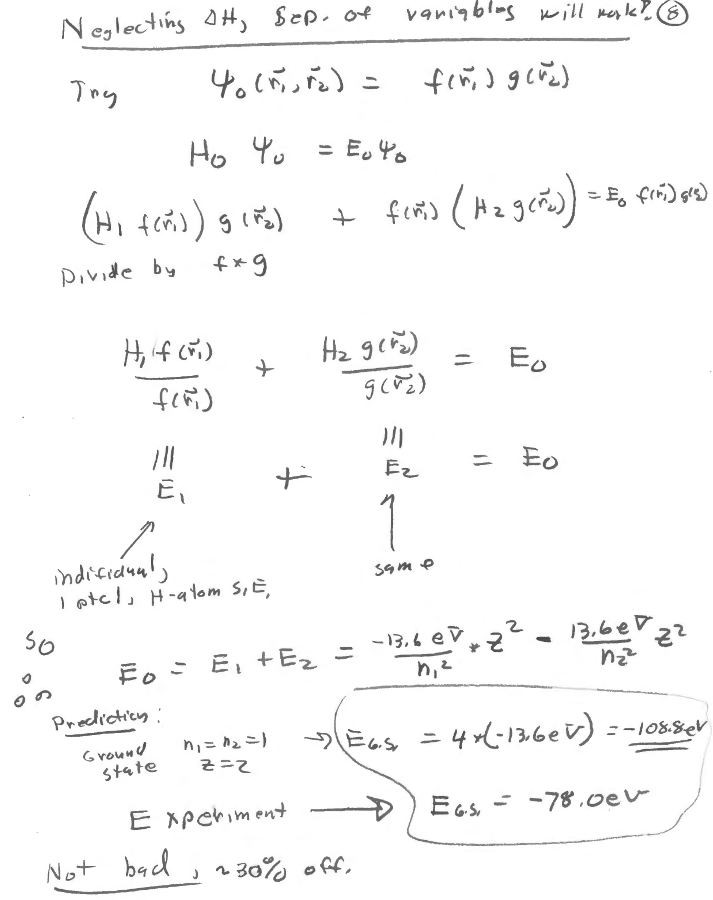 Neglecting ΔH, Sep. of variables will work! ⑧
Try ψ₀(r⃗₁, r⃗₂) = f(r⃗₁) g(r⃗₂)
H₀ ψ₀ = E₀ ψ₀
(H₁ f(r⃗₁)) g(r⃗₂) + f(r⃗₁) (H₂ g(r⃗₂)) = E₀ f(r⃗₁) g(r⃗₂)
Divide by f*g
H₁ f(r⃗₁) / f(r⃗₁) + H₂ g(r⃗₂) / g(r⃗₂) = E₀
||| |||
E₁ + E₂ = E₀
individual, same
1 ptcl, H-atom S.E,
so
E₀ = E₁ + E₂ = -13.6 eV / n₁² * Z² - 13.6 eV / n₂² Z²
Prediction:
Ground state n₁ = n₂ = 1 Z = 2 → E_G.S. = 4*(-13.6 eV) = -108.8 eV
Experiment → E_G.S. = -78.0 eV
Not bad, ~30% off.